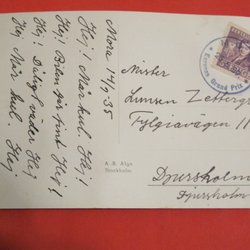 Mora 14/9 35
Hej! Mår kul. Hej!
Hej! Bilen går fint Hej!
Hej! Dåligt väder Hej
Hej. Mår kul. Hej
A.-B. Alga
Stockholm
Mister
Zetterg
Fylgiavägen 11
Djursholm
Djursholm
Grand Prix